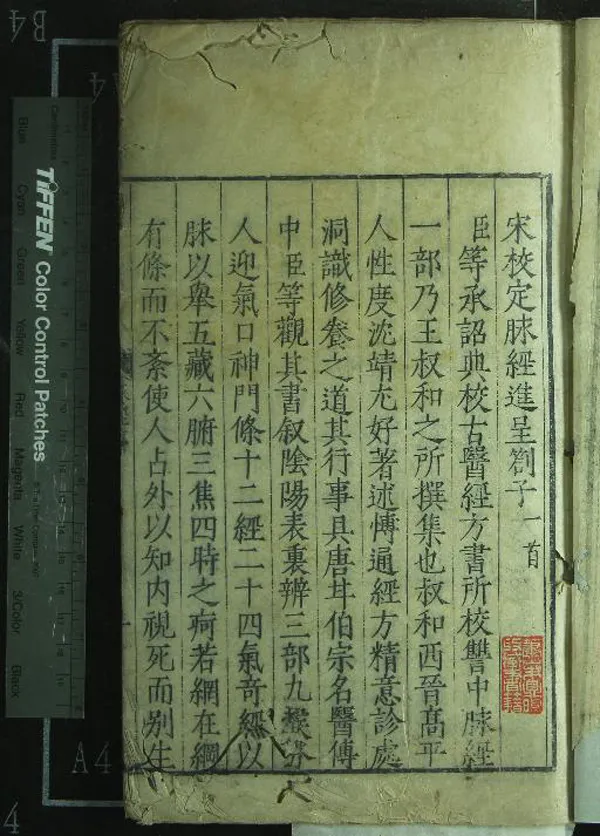 宋校定脉經進呈劄子一首
臣等承詔典校古醫經方書所校讐中脉經
一部乃王叔和之所撰集也叔和西晉髙平
人性度沈靖尤好著述博通經方精意診處
洞識修養之道其行事具唐甘伯宗名醫傳
中臣等觀其書叙陰陽表裏辨三部九候分
人迎氣口神門條十二經二十四氣竒經以
脉以舉五藏六腑三焦四時之疴若網在綱
有條而不紊使人占外以知内視死而别生
B4
A4
A4
4
TIFFEN Color Control Patches
Centimetres
Blue
Cyan
Green
Yellow
Red
Magenta
White
3/Color
Black